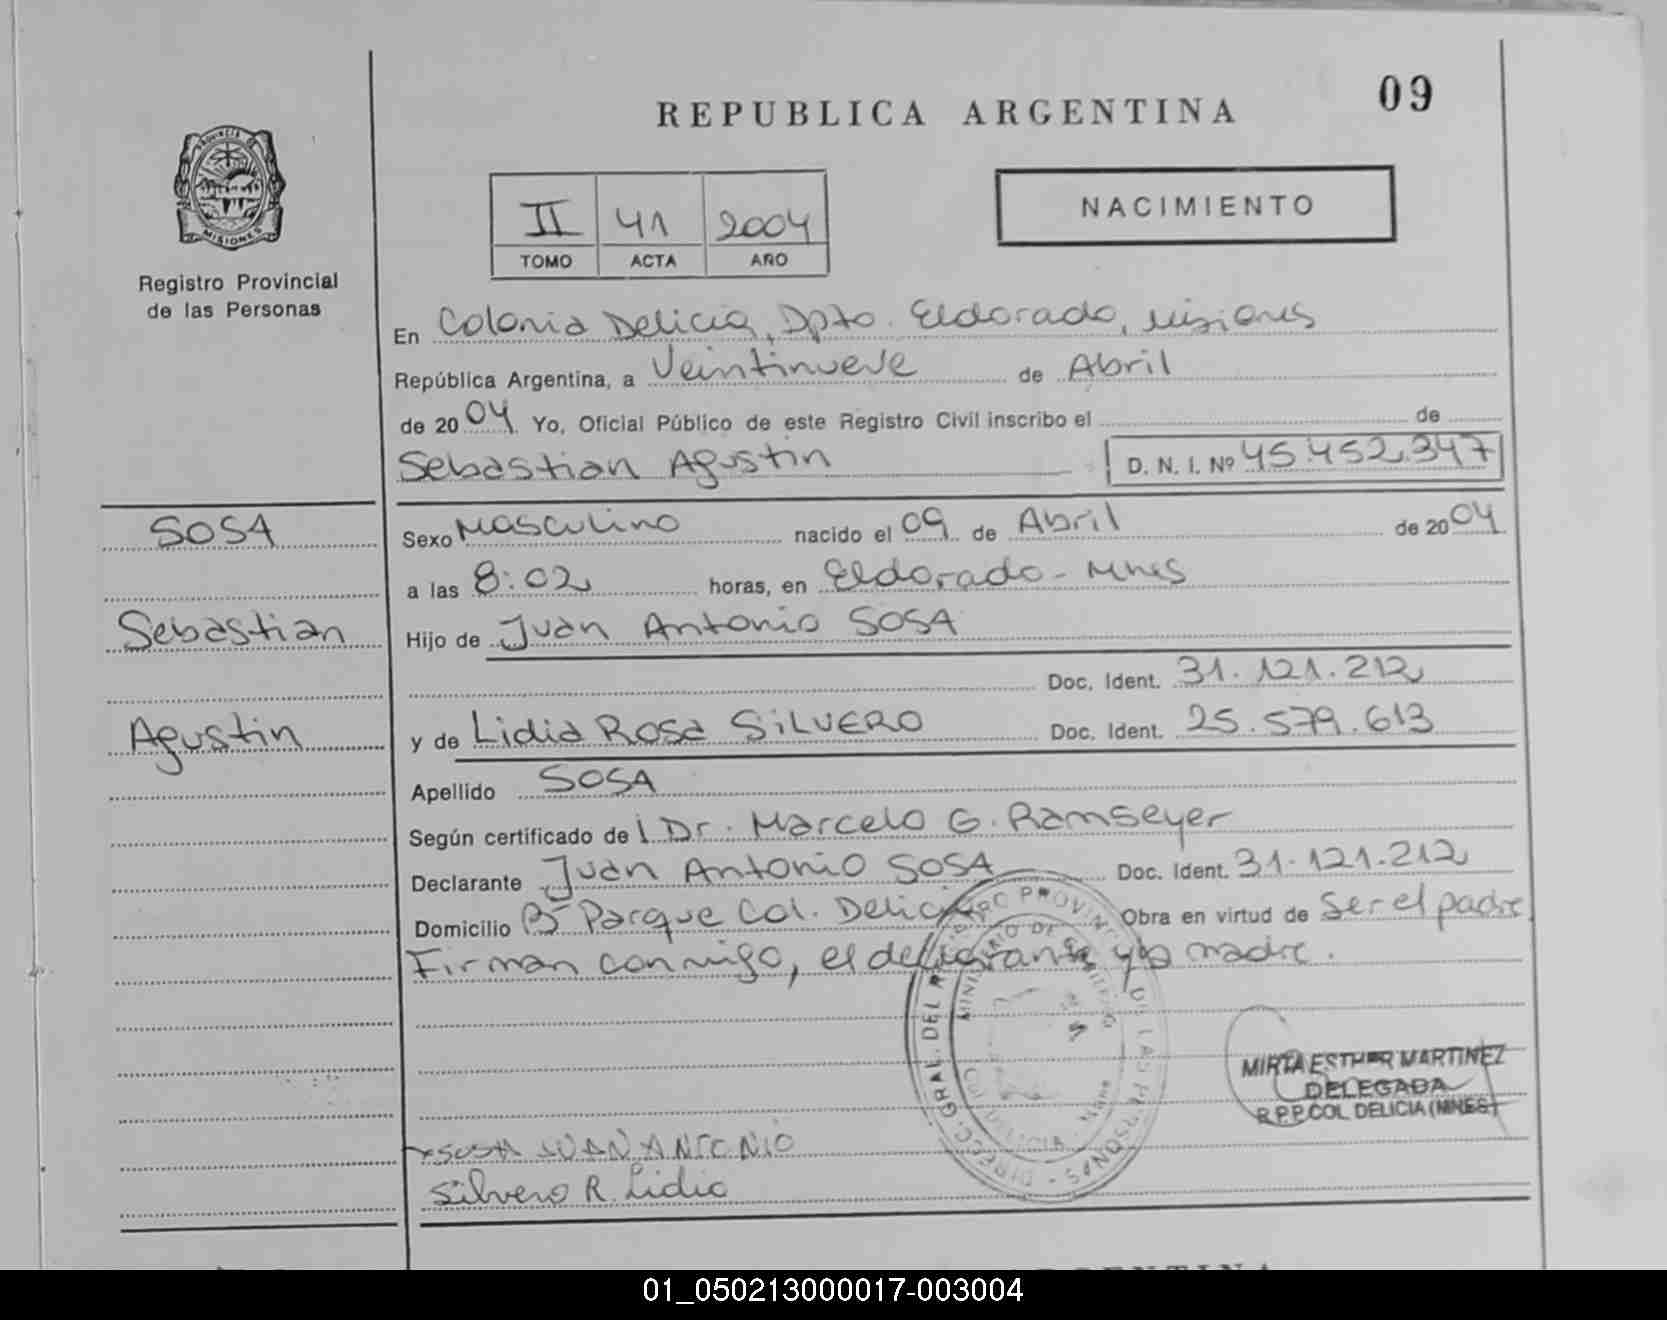 REPUBLICA ARGENTINA
09
PROVINCIA DE
MISIONES
Registro Provincial
de las Personas
II 41 2004
TOMO ACTA AÑO
NACIMIENTO
En Colonia Delicia, Dpto. Eldorado, Misiones
República Argentina, a Veintinueve de Abril
de 2004 Yo, Oficial Público de este Registro Civil inscribo el de
Sebastian Agustin D. N. I. Nº 45.452.347
SOSA
Sebastian
Agustin
Sexo Masculino nacido el 09 de Abril de 2004
a las 8:02 horas, en Eldorado - Mnes
Hijo de Juan Antonio SOSA
Doc. Ident. 31.121.212
y de Lidia Rosa SILVERO Doc. Ident. 25.579.613
Apellido SOSA
Según certificado de l Dr. Marcelo G. Ramseyer
Declarante Juan Antonio SOSA Doc. Ident. 31.121.212
Domicilio Bº Parque Col. Delicia Obra en virtud de Ser el padre
Firman conmigo, el declarante y la madre.
DIRECC. GRAL. DEL REGISTRO PROVINCIAL DE LAS PERSONAS
MINISTERIO DE
COL. DELICIA - Mnes
MIRTA ESTHER MARTINEZ
DELEGADA
R.P.P. COL. DELICIA (MNES)
SOSA JUAN ANTONIO
Silvero R. Lidia
01_050213000017-003004